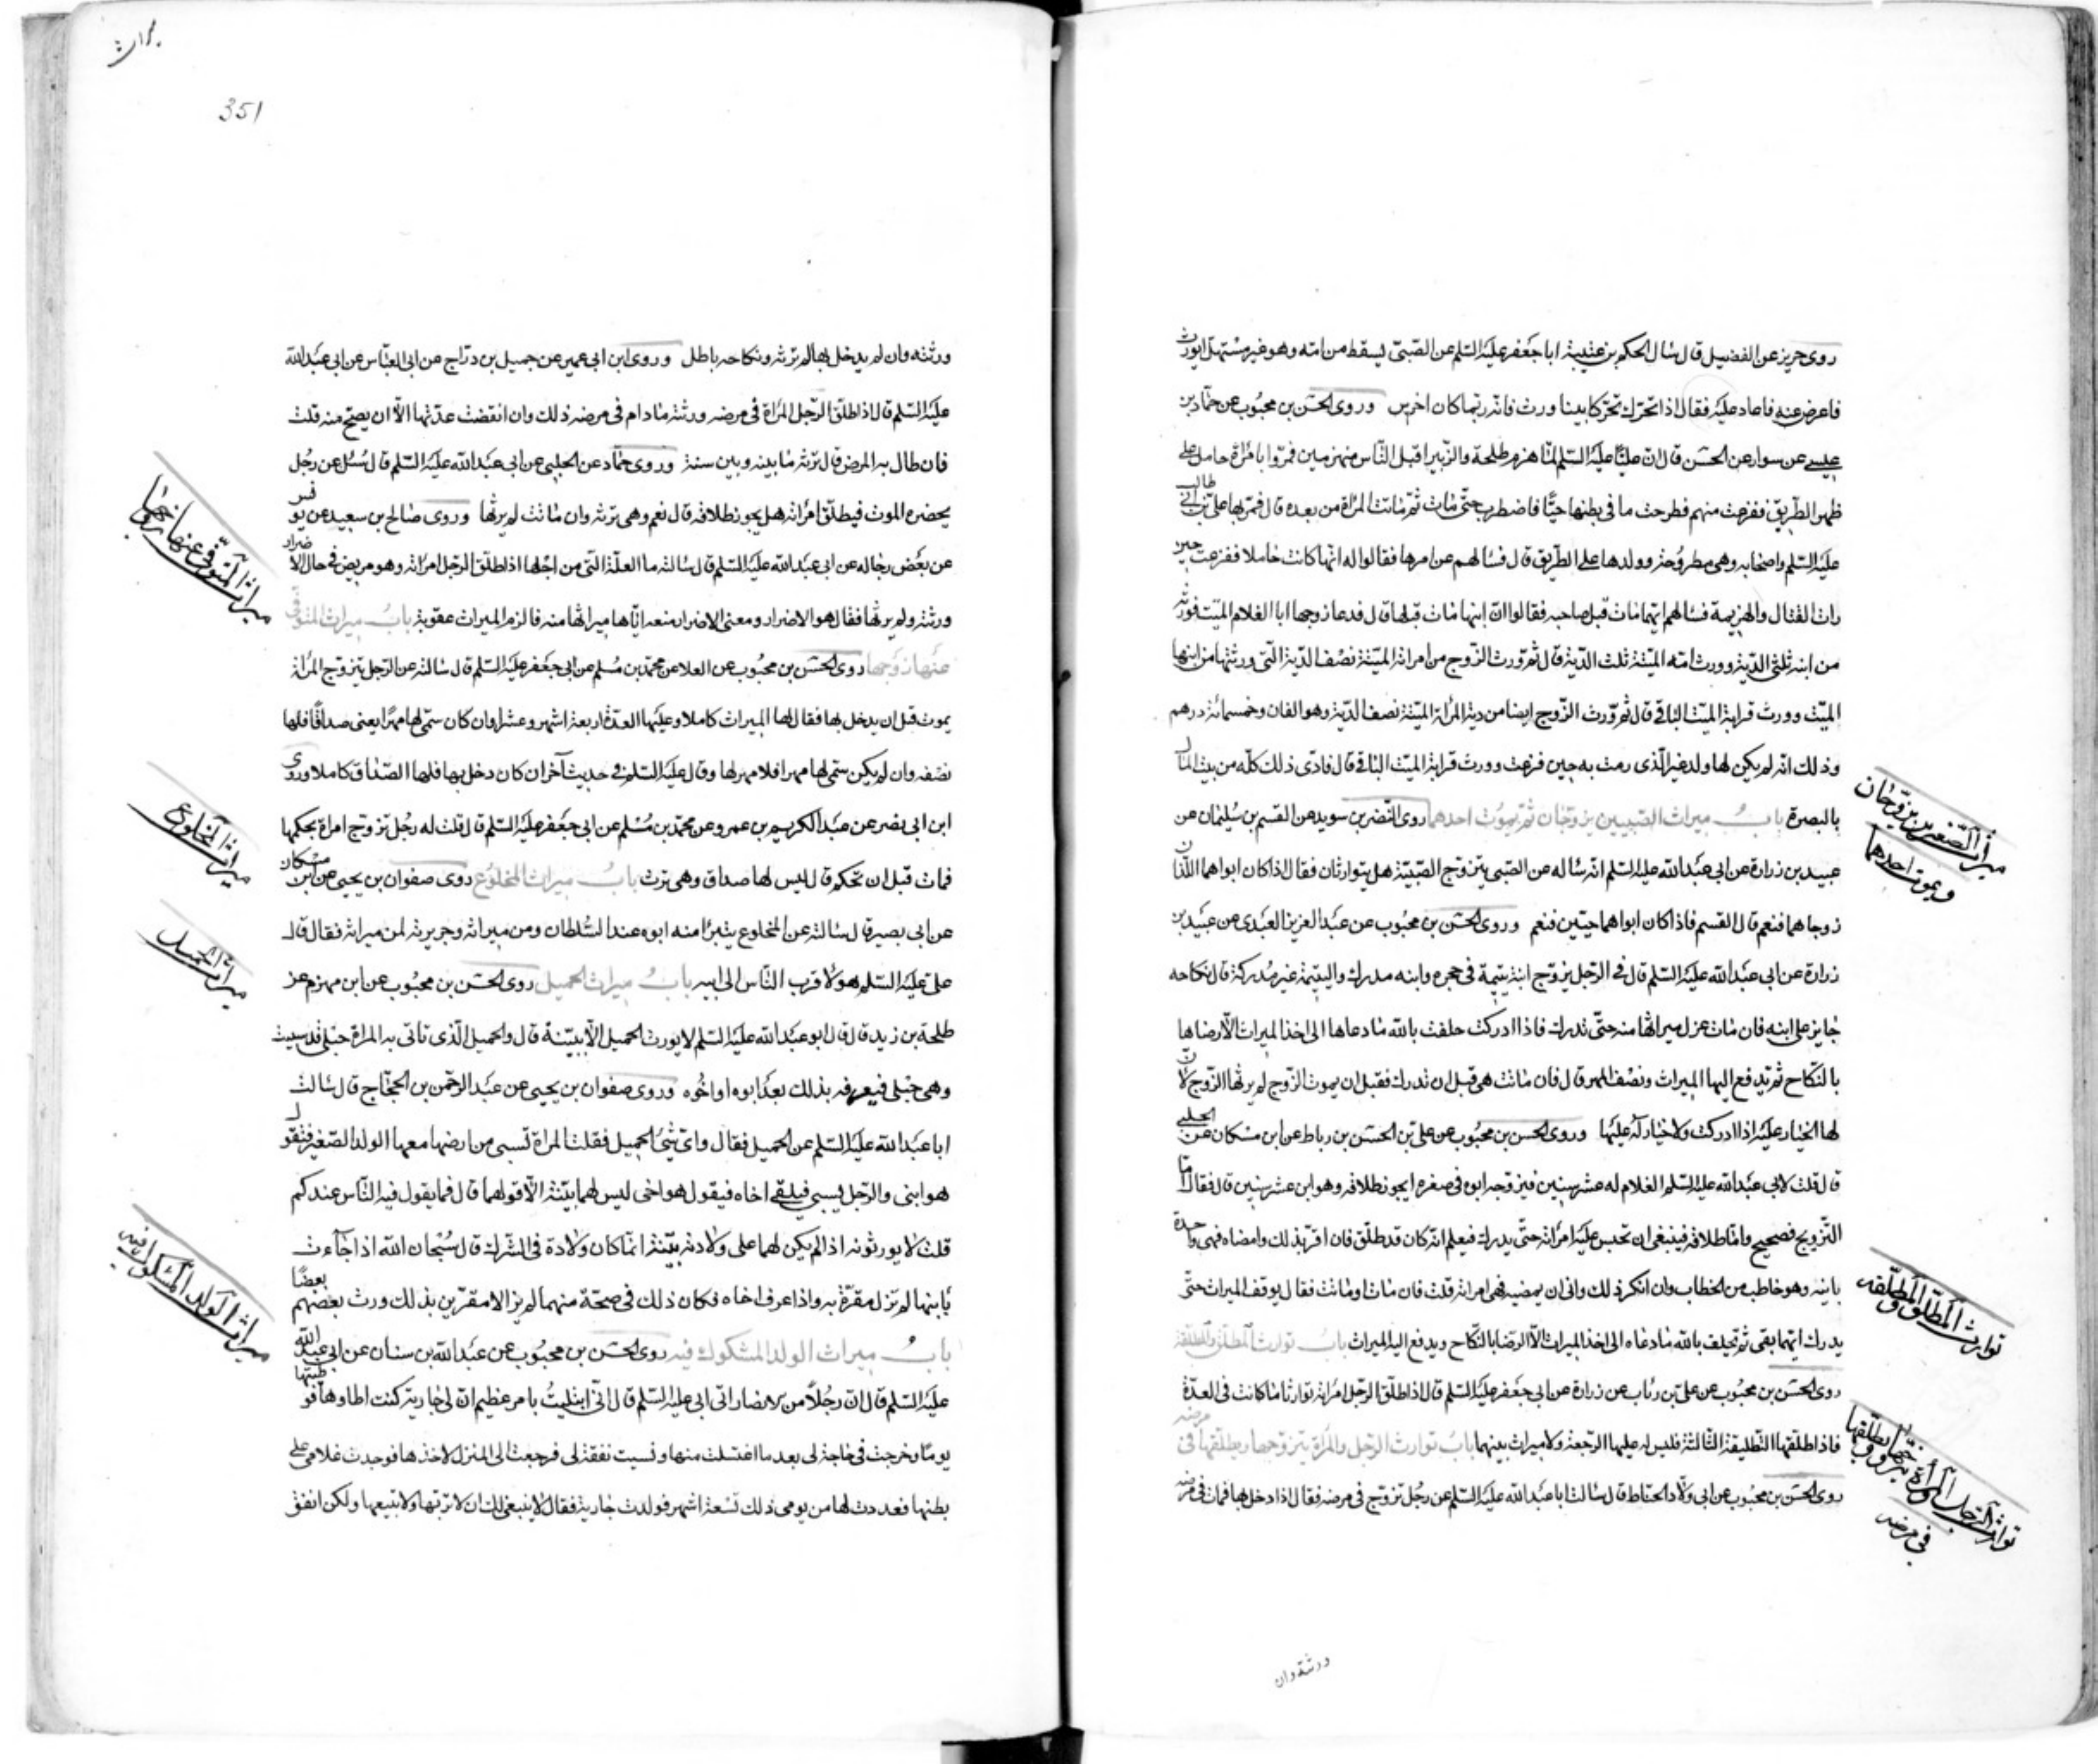 روى حريز عن الفضيل قال سال الحكم بن عتيبة ابا جعفر عليه السلم عن الصبى يسقط من امه وهو غير مستهل ايورث
فاعرض عنه فاعاد عليه فقال اذا تحرك تحركا بينا ورث فانه ربما كان اخرس وروى الحسن بن محبوب عن حماد بن
عيسى عن سوار عن الحسن قال ان عليا عليه السلم لما هزم طلحة والزبير اقبل الناس منهزمين فمروا بامراة حامل على
ظهر الطريق ففزعت منهم فطرحت ما فى بطنها حيا فاضطرب حتى مات ثم ماتت المراة من بعده قال فمر بها على بن ابى طالب
عليه السلم واصحابه وهى مطروحة وولدها على الطريق قال فسالهم عن امرها فقالوا له انها كانت حاملا ففزعت حين
رات القتال والهزيمة فسالهم ايهما مات قبل صاحبه فقالوا ان ابنها مات قبلها قال فدعا زوجها ابا الغلام الميت فورثه
من ابنه ثلثى الدية وورث امه الميتة ثلث الدية قال ثم ورث الزوج من امراته الميتة نصف الدية التى ورثتها من ابنها
الميت وورث قرابة الميت الباقى قال ثم ورث الزوج ايضا من دية المراة الميتة نصف الدية وهو الفان وخمسمائة درهم
وذلك انه لم يكن لها ولد غير الذى رمت به حين فزعت وورث قرابة الميت الباقى قال فادى ذلك كله من بيت المال
بالبصرة باب ميراث الصبيين يزوجان ثم يموت احدهما روى النضر بن سويد عن القسم بن سليمان عن
عبيد بن زرارة عن ابى عبد الله عليه السلم انه ساله عن الصبى يتزوج الصبية هل يتوارثان فقال اذا كان ابواهما اللذان
زوجاهما فنعم قال القسم فاذا كان ابواهما حيين فنعم وروى الحسن بن محبوب عن عبد العزيز العبدى عن عبيد بن
زرارة عن ابى عبد الله عليه السلم قال فى الرجل يزوج ابنة يتيمة فى حجره وابنه مدرك واليتيمة غير مدركة قال نكاحه
جايز على ابنه فان مات عزل ميراثها منه حتى تدرك فاذا ادركت حلفت بالله ما دعاها الى اخذ الميراث الا رضاها
بالنكاح ثم تدفع اليها الميراث ونصف المهر قال فان ماتت هى قبل ان تدرك فقبل ان يموت الزوج لم يرثها الزوج لان
لها الخيار عليه اذا ادركت ولا خيار له عليها وروى الحسن بن محبوب عن على بن الحسن بن رباط عن ابن مسكان عن الحلبى
قال قلت لابى عبد الله عليه السلم الغلام له عشر سنين فيزوجه ابوه فى صغره ايجوز طلاقه وهو ابن عشر سنين قال فقال اما
التزويج فصحيح واما طلاقه فينبغى ان تحبس عليه امراته حتى يدرك فيعلم انه كان قد طلق فان اقر بذلك وامضاه فهى واحدة
باينة وهو خاطب من الخطاب وان انكر ذلك وابى ان يمضيه فهى امراته قلت فان مات او ماتت فقال يوقف الميراث حتى
يدرك ايهما بقى ثم تحلف بالله ما دعاه الى اخذ الميراث الا الرضا بالنكاح ويدفع اليه الميراث باب توارث المطلق والمطلقة
روى الحسن بن محبوب عن على بن رئاب عن زرارة عن ابى جعفر عليه السلم قال اذا طلق الرجل امراته توارثا ما كانت فى العدة
فاذا طلقها التطليقة الثالثة فليس له عليها الرجعة ولا ميراث بينهما باب توارث الرجل والمراة يتزوجها ويطلقها فى مرضه
روى الحسن بن محبوب عن ابى ولاد الحناط قال سالت ابا عبد الله عليه السلم عن رجل تزوج فى مرضه فقال اذا دخل بها فمات فى مرضه
ورثته وان
ميراث الصغيرين يزوجان
ويموت احدهما
توارث المطلق والمطلقه
توارث الرجل والمرأة يتزوجها ويطلقها
فى مرضه
351
ورثته وان لم يدخل بها لم ترثه ونكاحه باطل وروى ابن ابى عمير عن جميل بن دراج عن ابى العباس عن ابى عبد الله
عليه السلم قال اذا طلق الرجل المراة فى مرضه ورثته ما دام فى مرضه ذلك وان انقضت عدتها الا ان يصح منه قلت
فان طال به المرض قال ترثه ما بينه وبين سنة وروى حماد عن الحلبى عن ابى عبد الله عليه السلم قال سئل عن رجل
يحضره الموت فيطلق امراته هل يجوز طلاقه قال نعم وهى ترثه وان ماتت لم يرثها وروى صالح بن سعيد عن يونس
عن بعض رجاله عن ابى عبد الله عليه السلم قال سالته ما العلة التى من اجلها اذا طلق الرجل امراته وهو مريض فى حال الاضرار
ورثته ولم يرثها فقال هو الاضرار ومعنى الاضرار منعه اياها ميراثها منه فالزم الميراث عقوبة باب ميراث المتوفى
عنها زوجها روى الحسن بن محبوب عن العلا عن محمد بن مسلم عن ابى جعفر عليه السلم قال سالته عن الرجل يتزوج المراة
يموت قبل ان يدخل بها فقال لها الميراث كاملا وعليها العدة اربعة اشهر وعشرا وان كان سمى لها مهرا يعنى صداقا فلها
نصفه وان لم يكن سمى لها مهرا فلا مهر لها وقال عليه السلم فى حديث آخر ان كان دخل بها فلها الصداق كاملا وروى
ابن ابى نصر عن عبد الكريم بن عمرو عن محمد بن مسلم عن ابى جعفر عليه السلم قال قلت له رجل تزوج امراة بحكمها
فمات قبل ان تحكم قال ليس لها صداق وهى ترث باب ميراث المخلوع روى صفوان بن يحيى عن ابن مسكان
عن ابى بصير قال سالته عن المخلوع يتبرأ منه ابوه عند السلطان ومن ميراثه وجريرته لمن ميراثه فقال قال
على عليه السلم هو لاقرب الناس الى ابيه باب ميراث الحميل روى الحسن بن محبوب عن ابن مهزم عن
طلحة بن زيد قال قال ابو عبد الله عليه السلم لا يورث الحميل الا ببينة قال والحميل الذى تاتى به المراة حبلى قد سبيت
وهى حبلى فيعرفه بذلك بعد ابوه او اخوه وروى صفوان بن يحيى عن عبد الرحمن بن الحجاج قال سالت
ابا عبد الله عليه السلم عن الحميل فقال واى شىء الحميل فقلت المراة تسبى من ارضها معها الولد الصغير فتقول
هو ابنى والرجل يسبى فيلقى اخاه فيقول هو اخى ليس لهما بينة الا قولهما قال فما يقول فيه الناس عندكم
قلت لا يورثونه اذا لم يكن لهما على ولادته بينة انما كان ولادة فى الشرك قال سبحان الله اذا جاءت
بابنها لم تزل مقرة به واذا عرف اخاه فكان ذلك فى صحة منهما لم يزالا مقرين بذلك ورث بعضهم بعضا
باب ميراث الولد المشكوك فيه روى الحسن بن محبوب عن عبد الله بن سنان عن ابى عبد الله
عليه السلم قال ان رجلا من الانصار اتى ابى عليه السلم قال انى ابتليت بامر عظيم ان لى جارية كنت اطاوها فوطيتها
يوما وخرجت فى حاجة لى بعد ما اغتسلت منها ونسيت نفقة لى فرجعت الى المنزل لاخذها فوجدت غلامى على
بطنها فعددت لها من يومى ذلك تسعة اشهر فولدت جارية فقال لا ينبغى لك ان لا تربها ولا تبيعها ولكن انفق
ميراث المتوفى عنها زوجها
ميراث المخلوع
ميراث الحميل
ميراث الولد المشكوك فيه